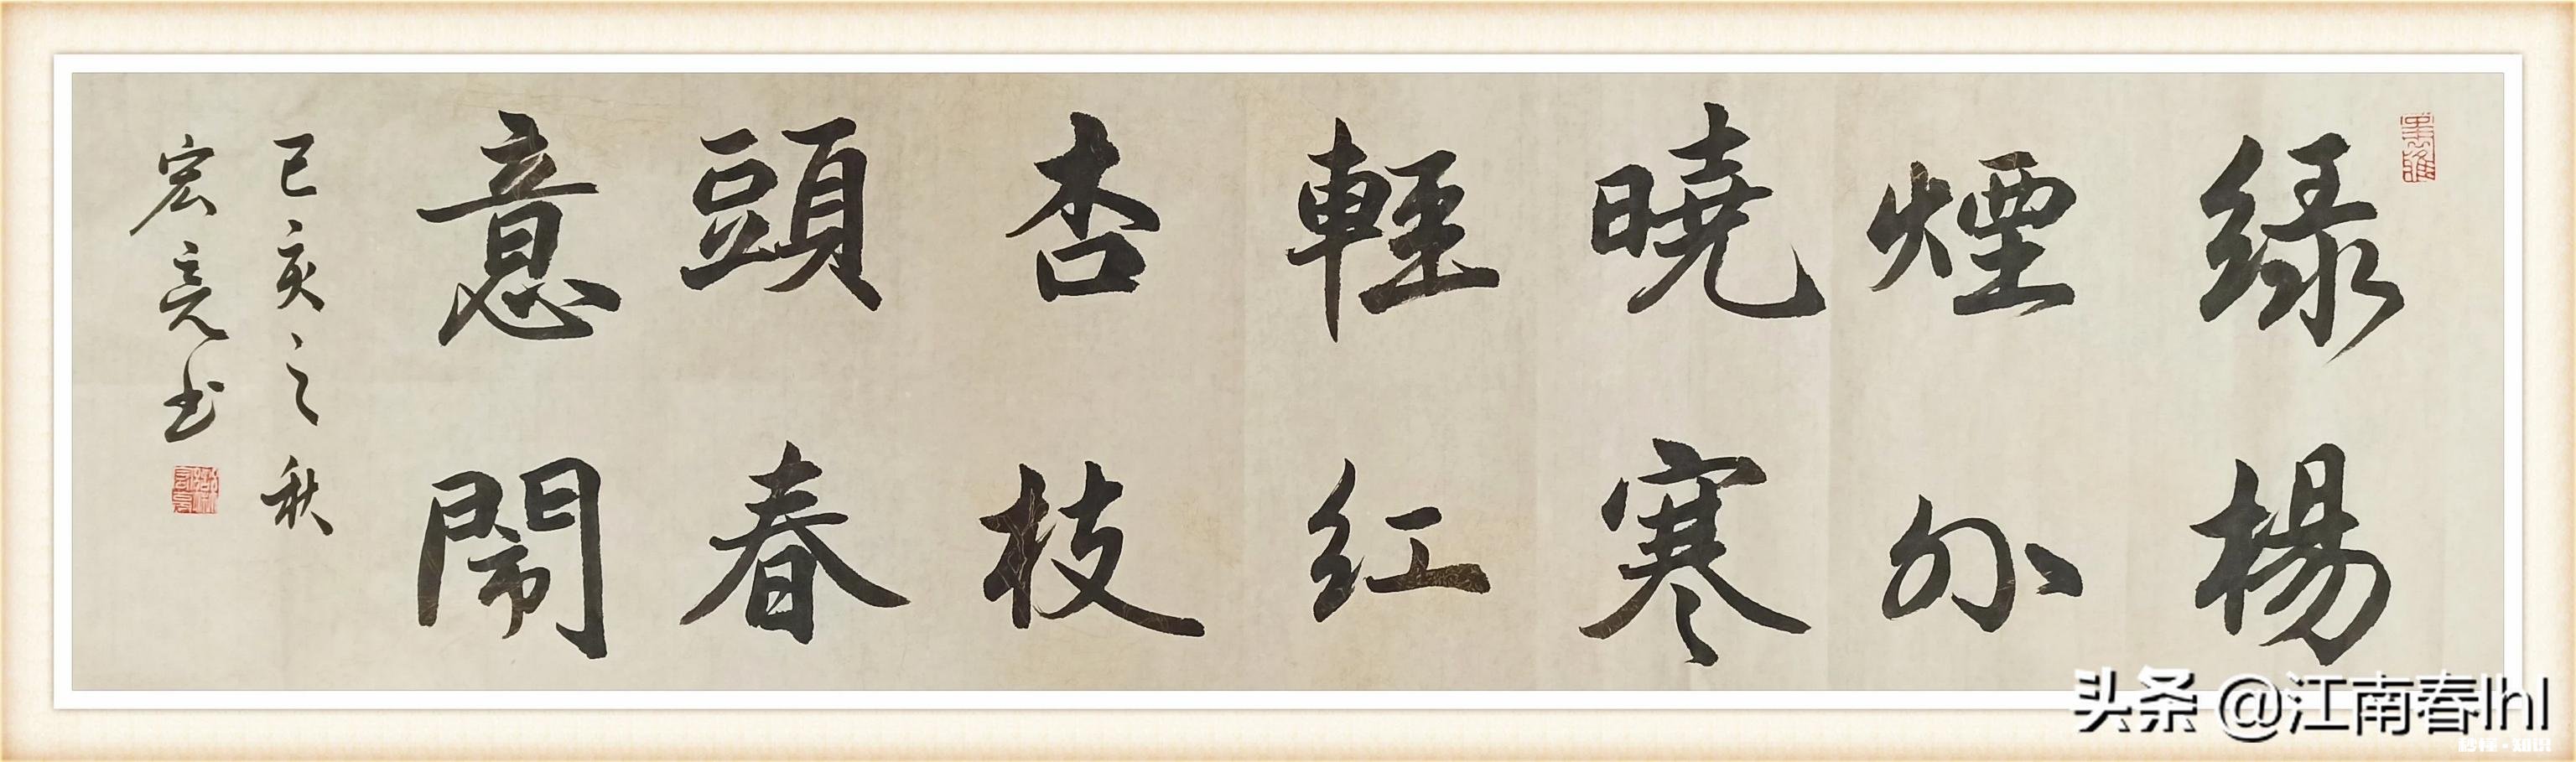 绿楊
煙外
曉寒
輕红
杏枝
頭春
意鬧
己亥之秋
宏亮书
头条 @江南春lhl